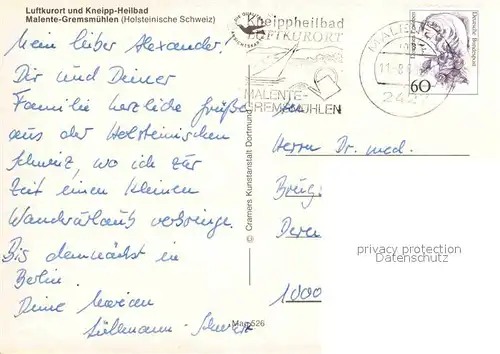 Luftkurort und Kneipp-Heilbad
Malente-Gremsmühlen (Holsteinische Schweiz)
Mein lieber Alexander!
Dir und Deiner
Familie herzliche Grüße
aus der Holsteinischen
Schweiz, wo ich zur
Zeit einen kleinen
Wanderurlaub verbringe.
Bis demnächst in
Berlin.
Deine Marion
© Cramers Kunstanstalt Dortmund
Ma 526
Kneippheilbad
LUFTKURORT
MALENTE-
GREMSMÜHLEN
MALENTE
11-8
242
Deutsche Bundespost
60
Herrn Dr. med.
1000
privacy protection
Datenschutz